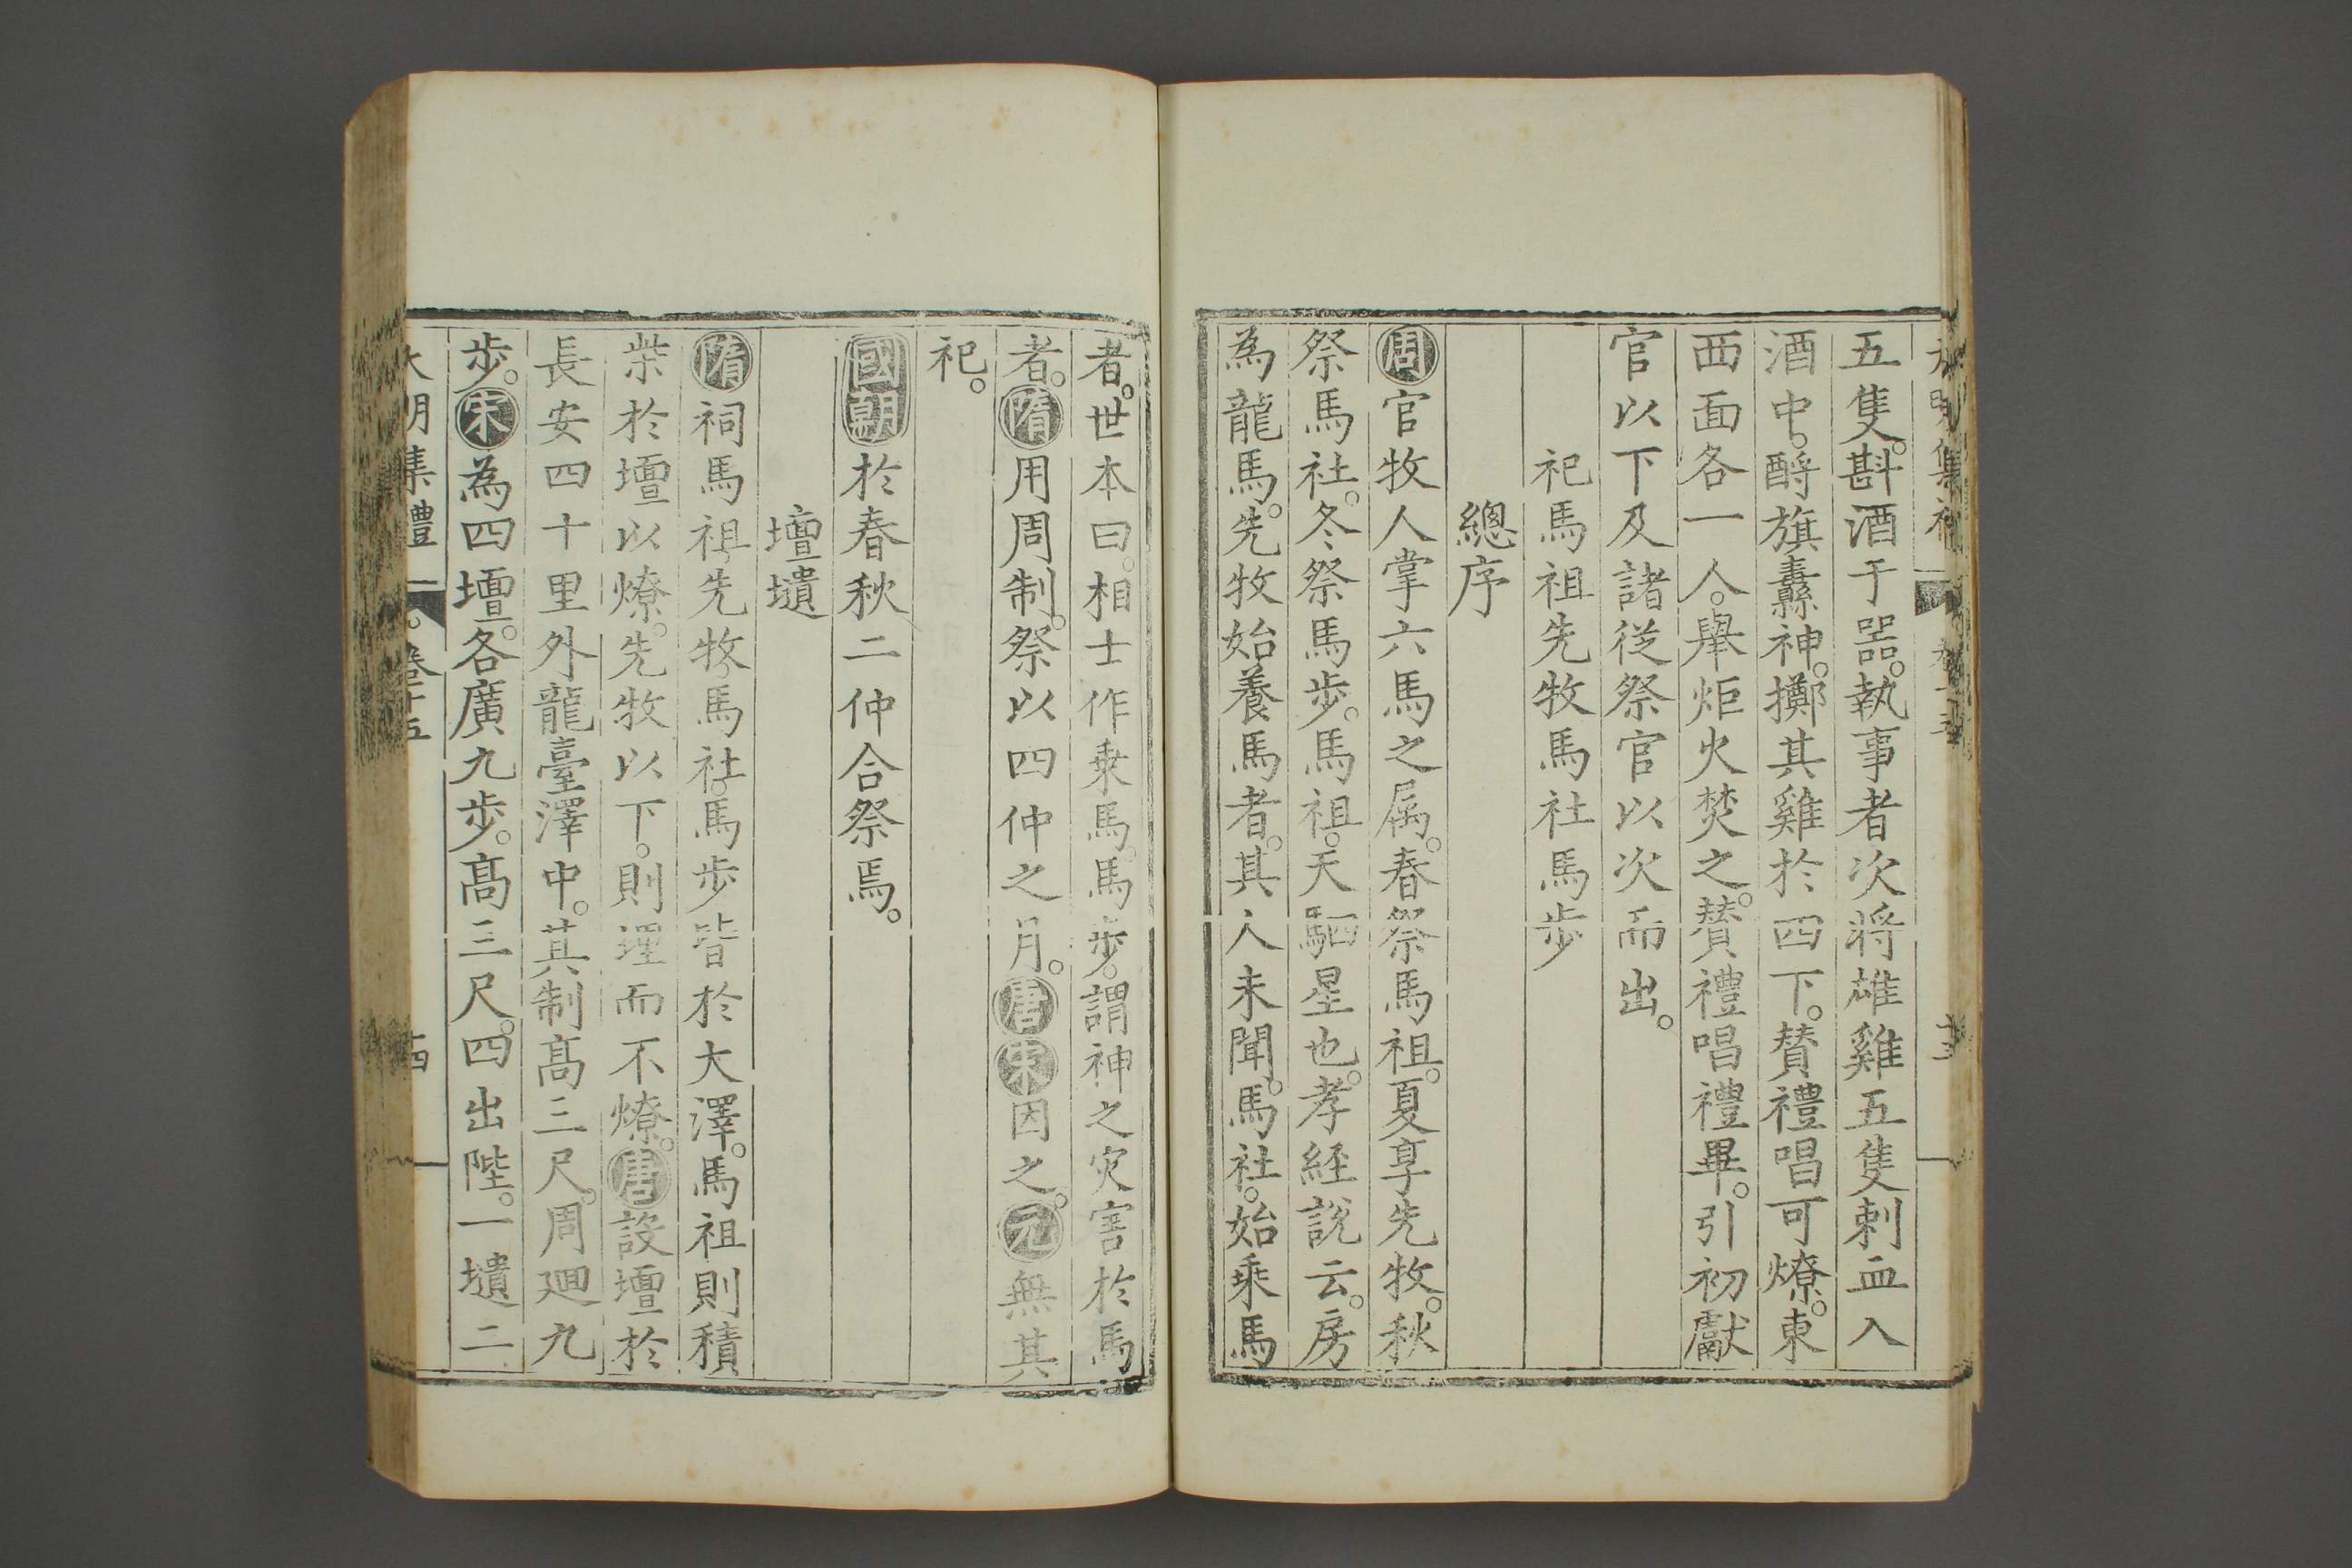 五隻。斟酒于器。執事者次將雄雞五隻刺血入
酒中。酹旗纛神。擲其雞於四下。贊禮唱可燎。東
西面各一人。舉炬火焚之。贊禮唱禮畢。引初獻
官以下及諸從祭官以次而出。
祀馬祖先牧馬社馬步
總序
周官牧人掌六馬之屬。春祭馬祖。夏享先牧。秋
祭馬社。冬祭馬步。馬祖。天駟星也。孝經說云。房
為龍馬。先牧始養馬者。其人未聞。馬社。始乘馬
者。世本曰。相士作乗馬。馬步。謂神之灾害於馬
者。隋用周制。祭以四仲之月。唐宋因之。元無其
祀。
國朝於春秋二仲合祭焉。
壇壝
隋祠馬祖先牧馬社。馬步皆於大澤。馬祖則積
柴於壇以燎。先牧以下。則埋而不燎。唐設壇於
長安四十里外龍臺澤中。其制高三尺。周廻九
步。宋為四壇。各廣九步。高三尺。四出陛。一壝二
大明集禮 卷十五 十四